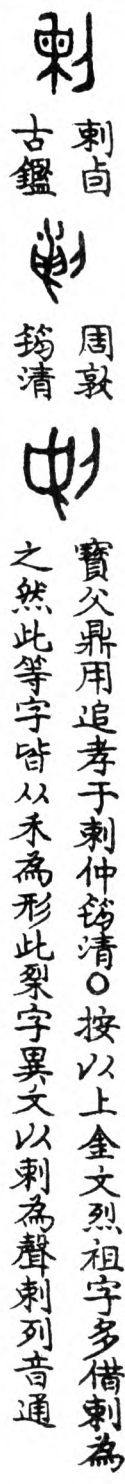 剌卣
古鑑
周敦
筠清
寶父鼎用追孝于剌仲筠清○按以上金文烈祖字多借剌為
之然此等字皆从禾為形此梨字異文以剌為聲剌列音通